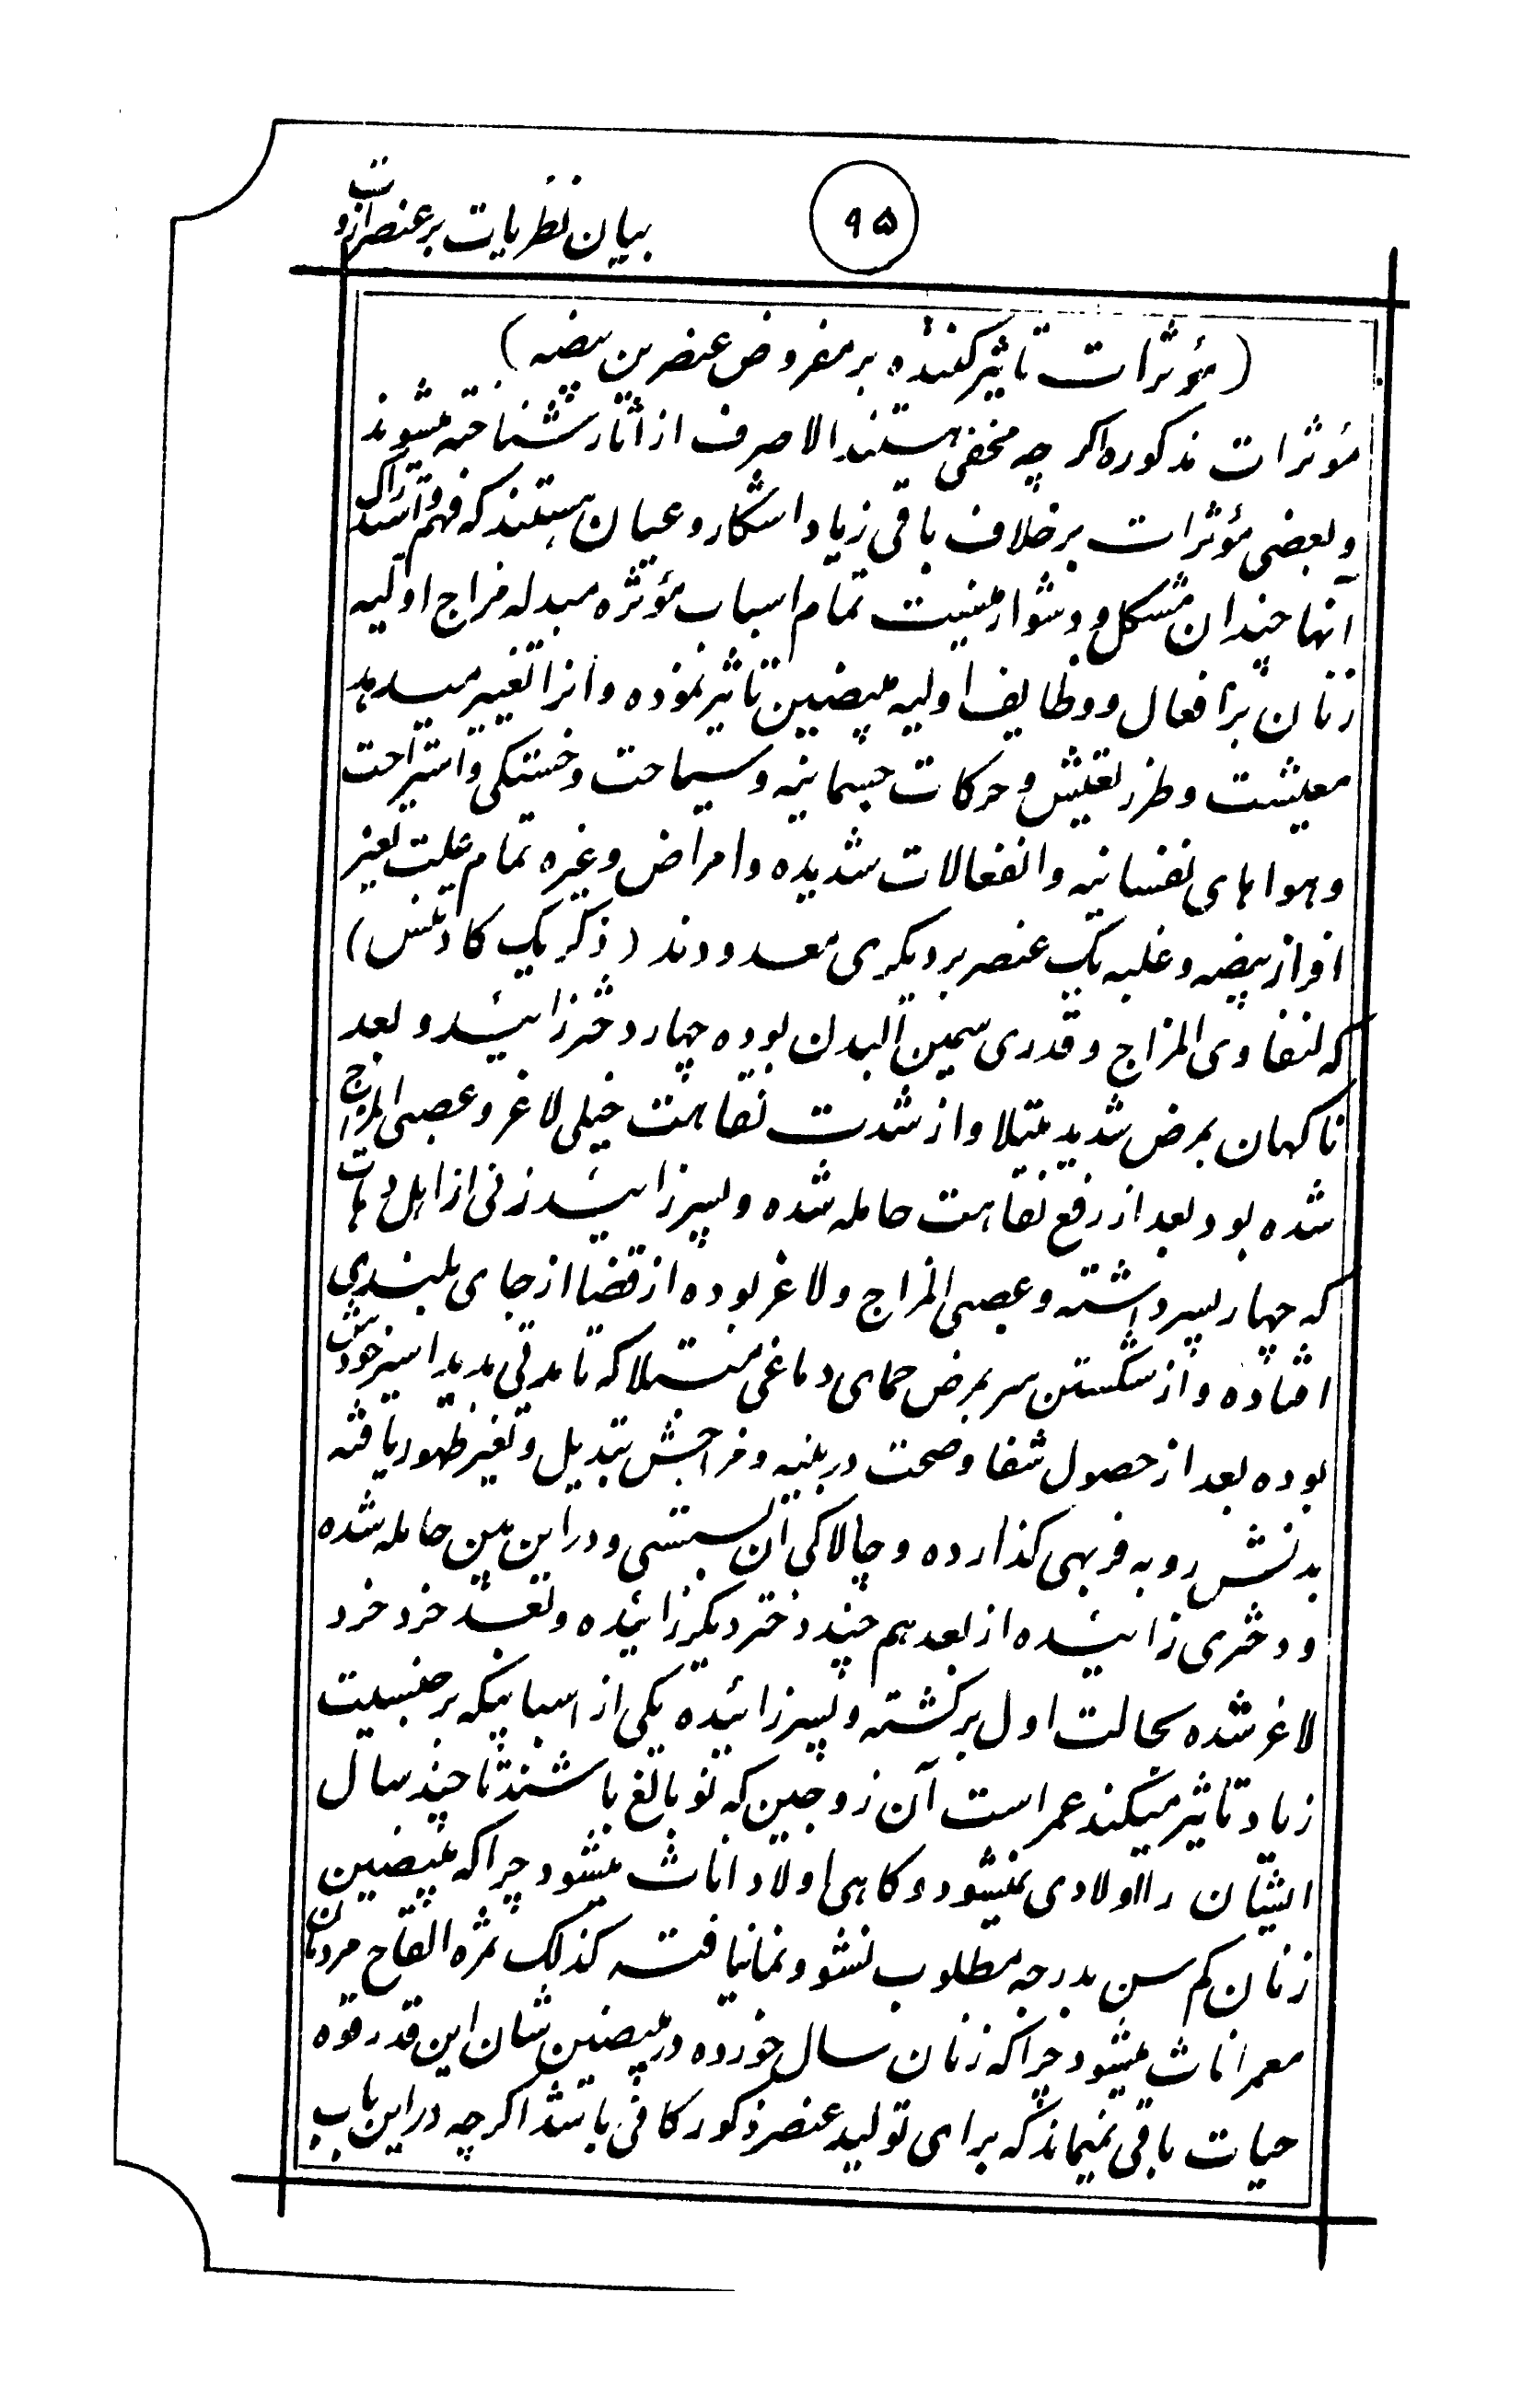 بیان نظریات بر عنصر ازوت
۹۵
(مؤثرات تاثیر کننده بر مفروض عنصرین بیضه)
مؤثرات مذکوره اکر چه مخفی هستند الا صرف از آثار شناخته میشوند
و بعضی مؤثرات بر خلاف باقی زیاد آشکار و عیان هستند که فهم و استدراک
آنها چندان مشکل و دشوار نیست تمام اسباب مؤثره مبدله مزاج اولیه
زنان بر افعال و وظایف اولیه مبیضین تاثیر نموده و آنرا تغییر میدهد
معیشت و طرز تعیش و حرکات جسمانیه و سیاحت و خستکی و استراحت
و هواهای نفسانیه و انفعالات شدیده و امراض و غیره تمام علیت تغیر
افراز بیضه و غلبه یک عنصر بر دیکری معدودند (ذکر یک کادنس)
که لنفاوی المزاج و قدری سمین البدن بوده چهار دختر زائید و بعد
ناکهان بمرض شدید مبتلا و از شدت نقاهت خیلی لاغر و عصبی المزاج
شده بود بعد از رفع نقاهت حامله شده و پسر زائید زنی از اهل دهات
که چهار پسر داشته و عصبی المزاج و لاغر بوده از قضا از جای بلندی
افتاده و از شکستن سر بمرض حمای دماغی مبتلا که تا مدتی مدید اسیر خودش
بوده بعد از حصول شفا و صحت در بنیه و مزاجش تبدیل و تغیر ظهور یافته
بدنش رو به فربهی کذارده و چالاکی آن بسستی و در این بین حامله شده
و دختری زائیده از بعد هم چند دختر دیکر زائیده و بعد خرد خرد
لاغر شده بحالت اول برکشته و پسر زائیده یکی از اسبابیکه بر جنسیت
زیاد تاثیر میکند عمر است آن زوجین که نو بالغ باشند تا چند سال
ایشان را اولادی نمیشود و کاهی اولاد اناث میشود چراکه مبیضین
زنان کم سن بدرجه مطلوب نشو و نما نیافته کذلک ثمره القاح مردمان
معمر اناث میشود چراکه زنان سال خورده در مبیضین شان این قدر قوه
حیات باقی نمیماند که برای تولید عنصر ذکور کافی باشد اکرچه در این باب